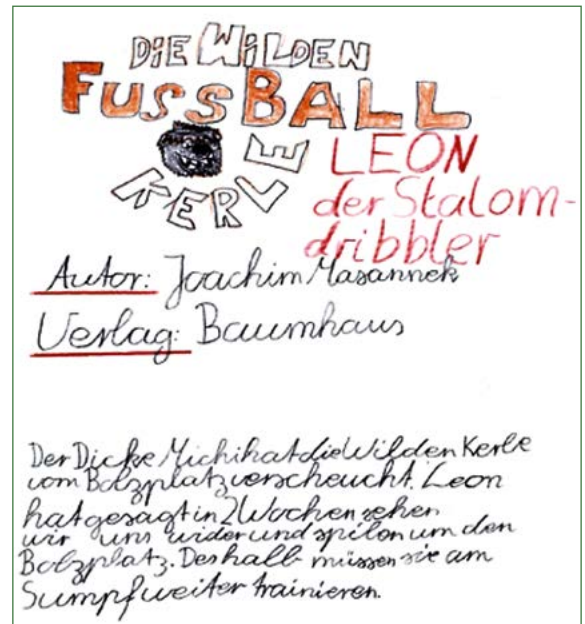 DIE WILDEN
FUSSBALL
KERLE
LEON
der Stalom-
dribbler
Autor: Joachim Masannek
Verlag: Baumhaus
Der Dicke Michi hat die Wilden Kerle
vom Bolzplatz verscheucht. Leon
hat gesagt in 2 Wochen sehen
wir uns wider und spilen um den
Bolzplatz. Deshalb müssen sie am
Sumpf weiter trainieren.